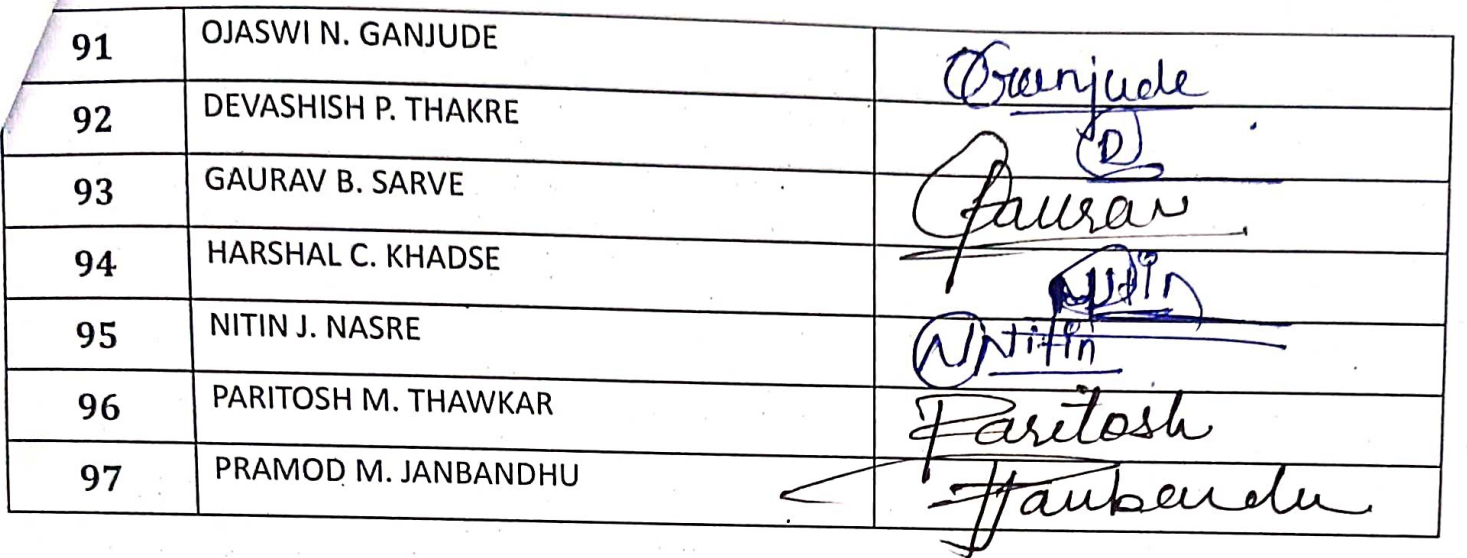 91 OJASWI N. GANJUDE OGanjude
92 DEVASHISH P. THAKRE D
93 GAURAV B. SARVE Gaurav
94 HARSHAL C. KHADSE Nitin
95 NITIN J. NASRE N Nitin
96 PARITOSH M. THAWKAR Paritosh
97 PRAMOD M. JANBANDHU